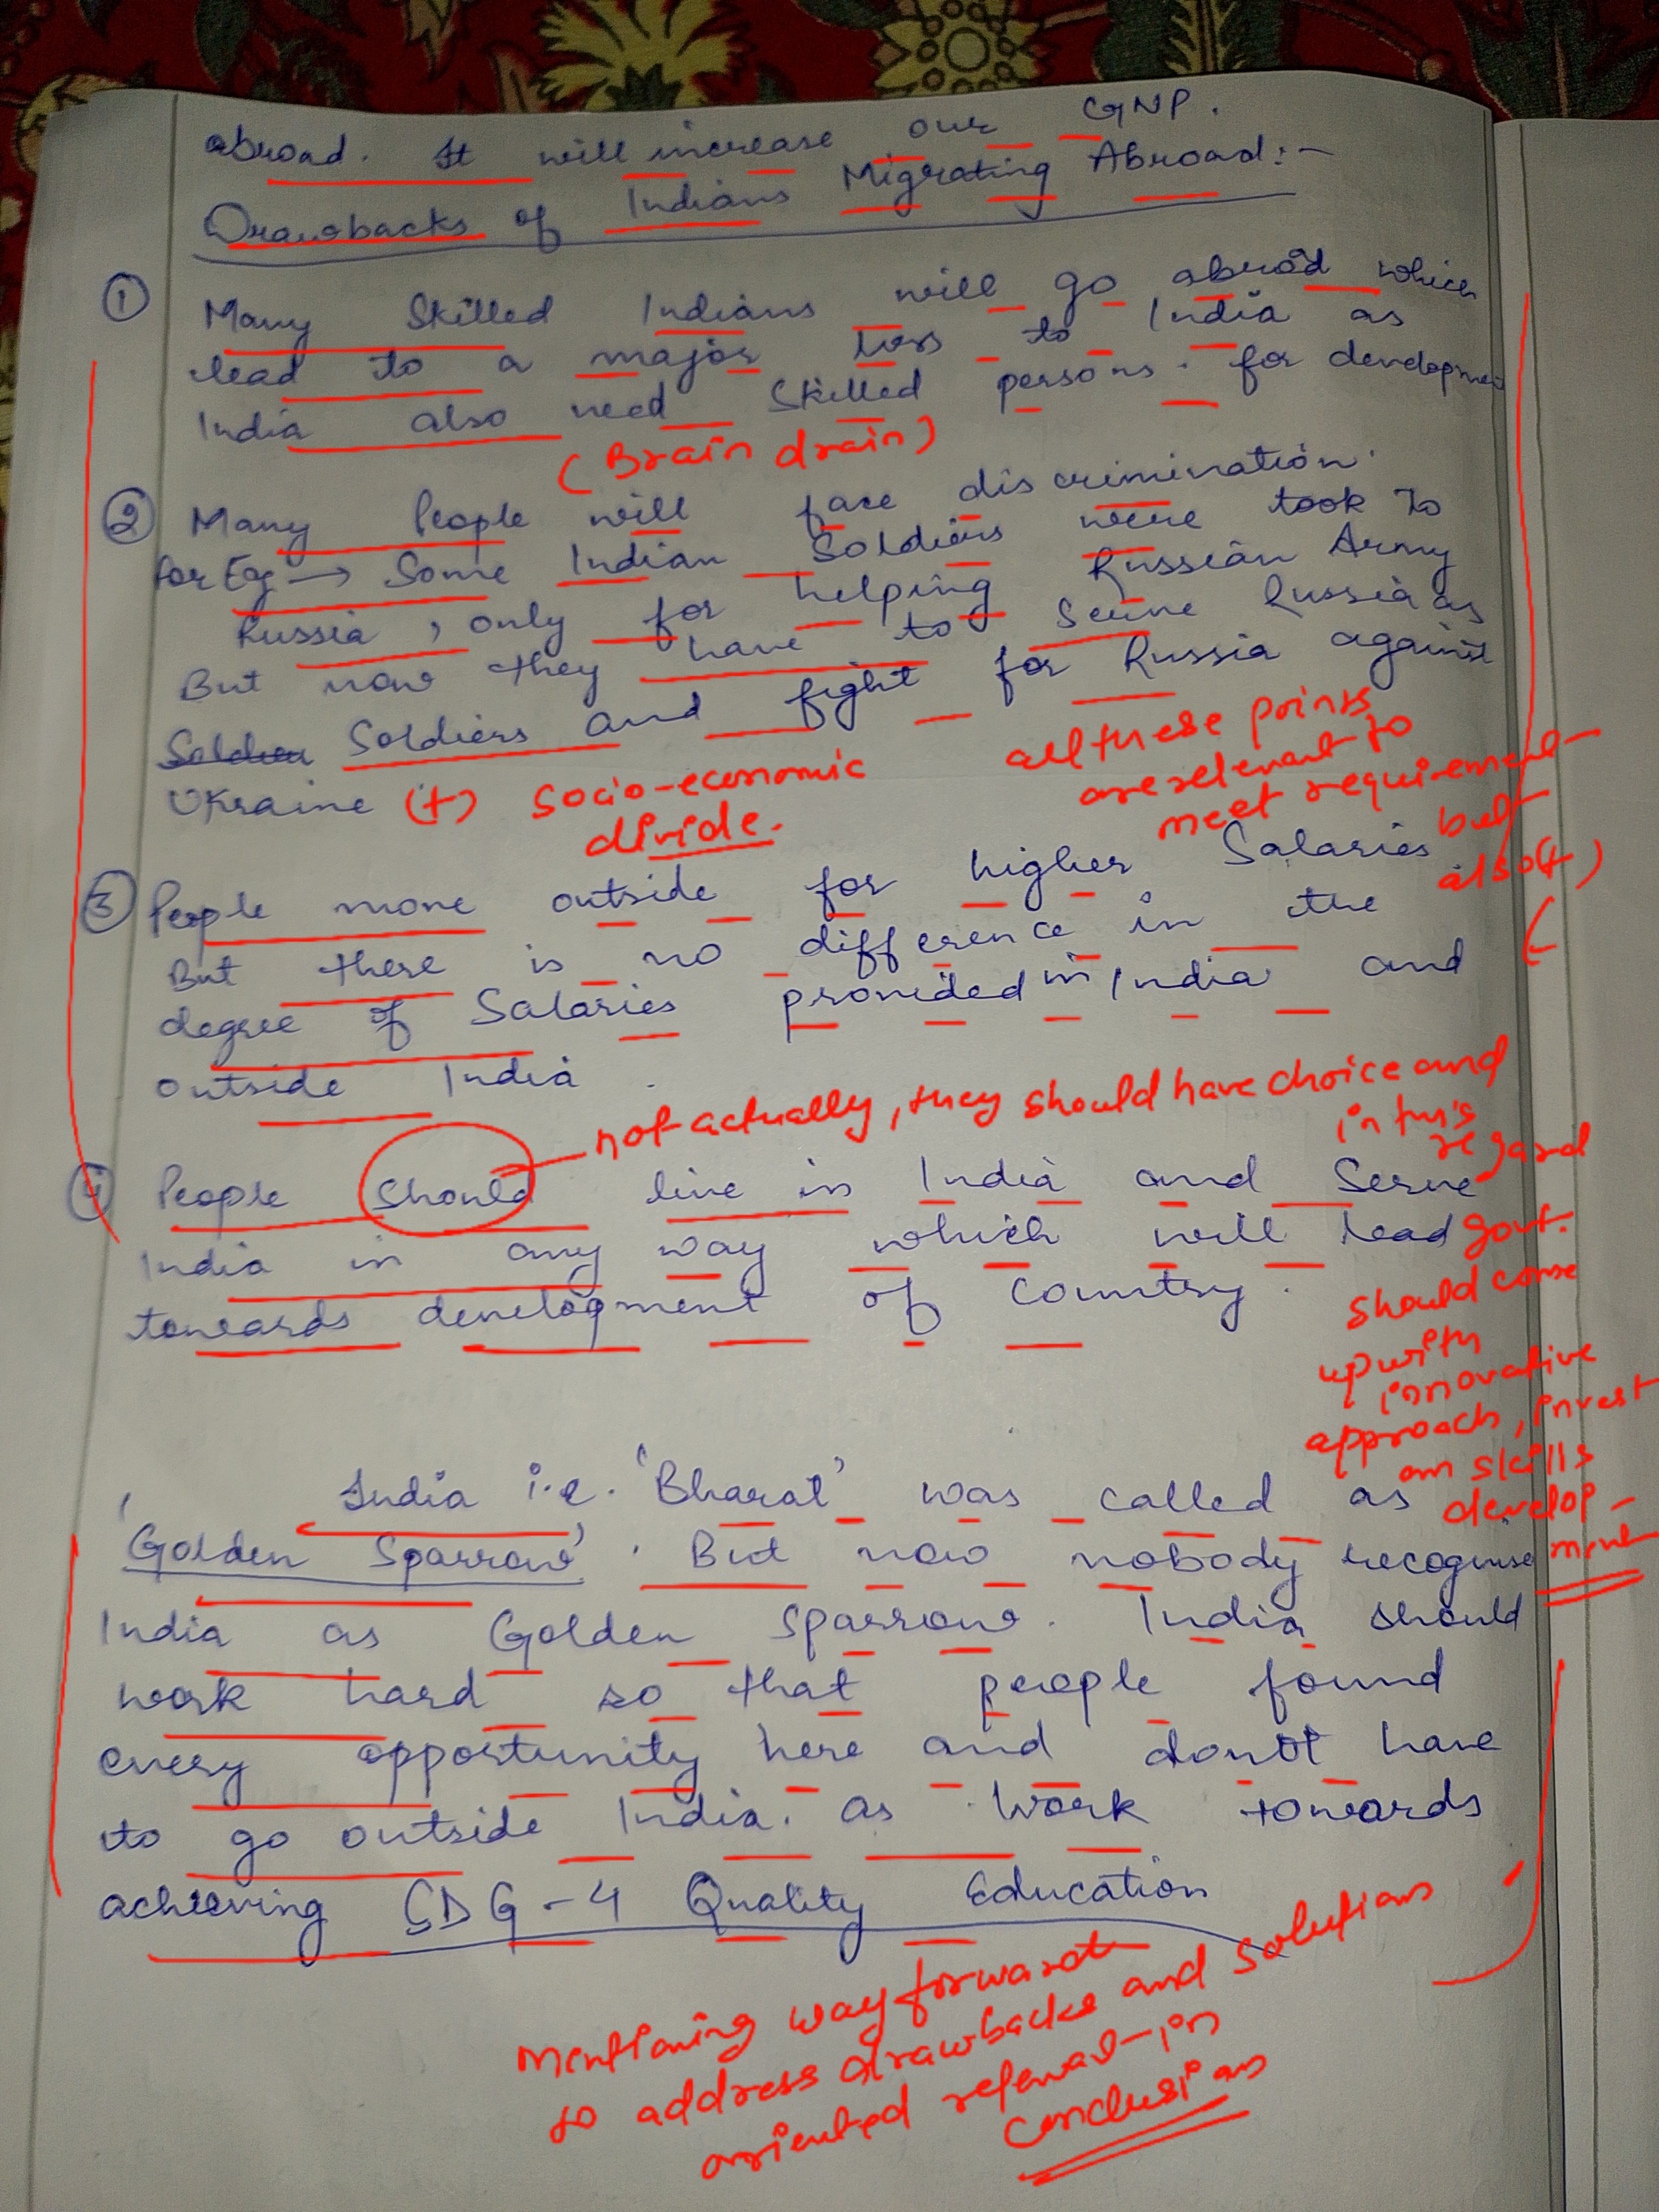 abroad. It will increase our GNP.
Drawbacks of Indians Migrating Abroad:-
① Many Skilled Indians will go abroad which
lead to a major loss to India as
India also need Skilled persons. for development
(Brain drain)
② Many People will face discrimination.
For Eg → Some Indian Soldiers were took to
Russia, only for helping Russian Army
But now they have to Serve Russia as
Soldiers and fight for Russia against
Ukraine (+) Socio-economic
divide.
all these points
are relevant to
meet requirement
but
also (+)
③ People move outside for higher Salaries
But there is no difference in the
degree of Salaries provided in India and
outside India.
not actually, they should have choice and
in this
regard
④ People should live in India and Serve
India in any way which will lead
towards development of Country.
govt.
should come
up with
innovative
approach, invest
on skills
develop-
ment
India i.e. 'Bharat' was called as
'Golden Sparrow'. But now nobody recognise
India as Golden Sparrow. India should
work hard so that people found
every opportunity here and don't have
to go outside India. as work towards
achieving SDG-4 Quality Education
Mentioning way forward
to address drawbacks and solutions
oriented referral in
conclusions